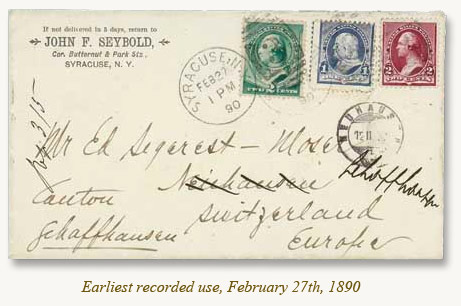 If not delivered in 5 days, return to
JOHN F. SEYBOLD,
Cor. Butternut & Park Sts.,
SYRACUSE, N. Y.
SYRACUSE, N.
FEB 27
1 PM
90
TWO CENTS
1
2 2
TWO CENTS
NEUHAUS
Mr Ed Segerest - Moser
Neuhausen
Canton
Switzerland
Schaffhausen
Europe
Earliest recorded use, February 27th, 1890